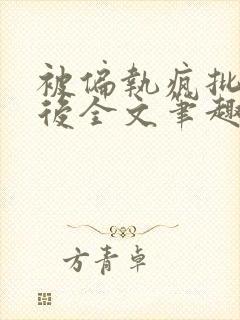 被偏執瘋批
後全文筆趣
方青卓